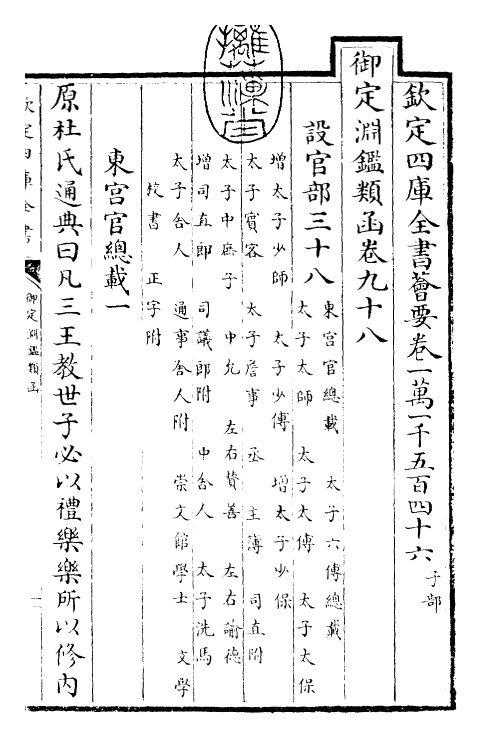 欽定四庫全書薈要卷一萬一千五百四十六 子部
御定淵鑑類函卷九十八
設官部三十八 東宮官總載 太子六傅總載
太子太師 太子太傅 太子太保
增太子少師 太子少傅 增太子少保
太子賓客 太子詹事 丞 主簿 司直附
太子中庶子 中允 左右贊善 左右諭德
增司直郎 司議郎附 中舍人 太子洗馬
太子舍人 通事舍人附 崇文館學士 文學
校書 正字附
東宮官總載一
原杜氏通典曰凡三王教世子必以禮樂樂所以修内
欽定四庫全書
御定淵鑑類函